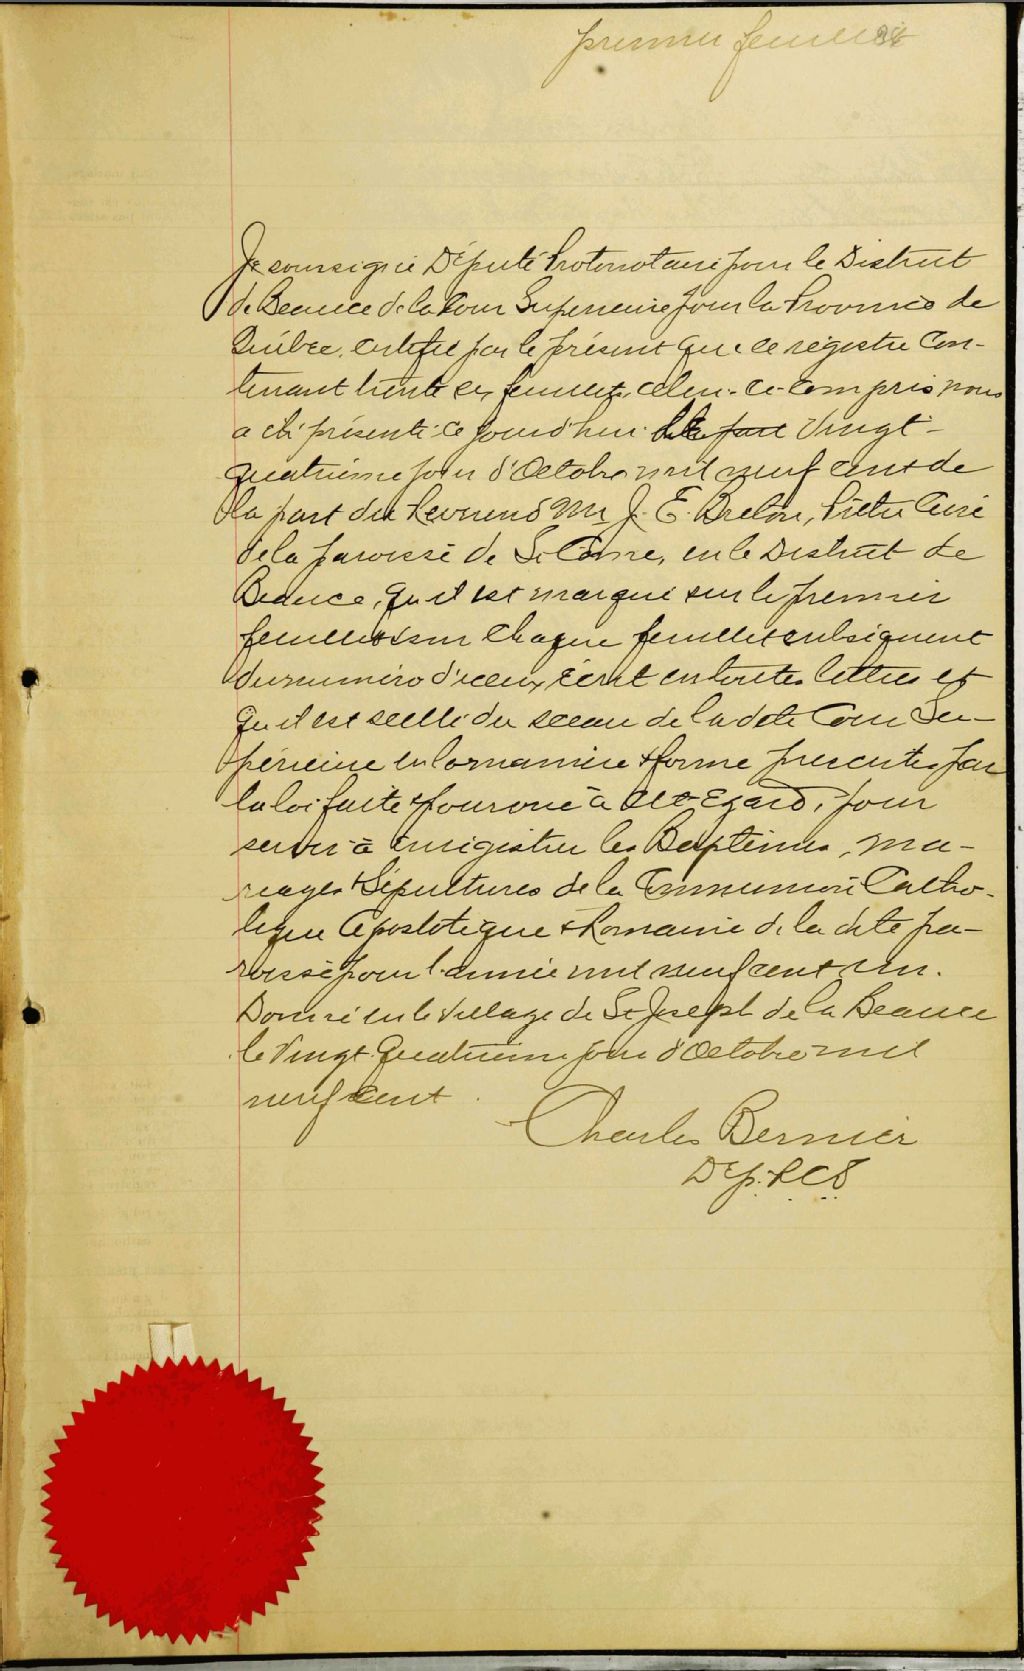 premier feuillet
Je soussigné Député Protonotaire pour le District
de Beauce de la Cour Superieure pour la Province de
Québec, certifie par le présent que ce régistre Con-
tenant trente six feuillets, celui-ci-compris nous
a été présenté ce jourd'hui de la part Vingt-
quatrième jour d'Octobre mil neuf cent de
la part du Reverend Mr J. E. Breton, Prêtre Curé
de la paroisse de St Côme, en le District de
Beauce, qu'il est marqué sur le premier
feuillet & sur chaque feuillet subséquent
du numéro d'iceux, écrit en toutes lettres et
qu'il est scellé du sceau de la dite Cour Su-
périeure en la manière & forme prescrites par
la loi faite & pourvue à cet Egard, pour
servir à enregistrer les Baptêmes, ma-
riages & Sépultures de la Communion Catho-
lique Apostolique & Romaine de la dite pa-
roisse pour l'année mil neuf cent un.
Donné en le Village de St Joseph de la Beauce
le Vingt quatrième jour d'Octobre mil
neuf cent.
Charles Bernier
Dép. P.C.S